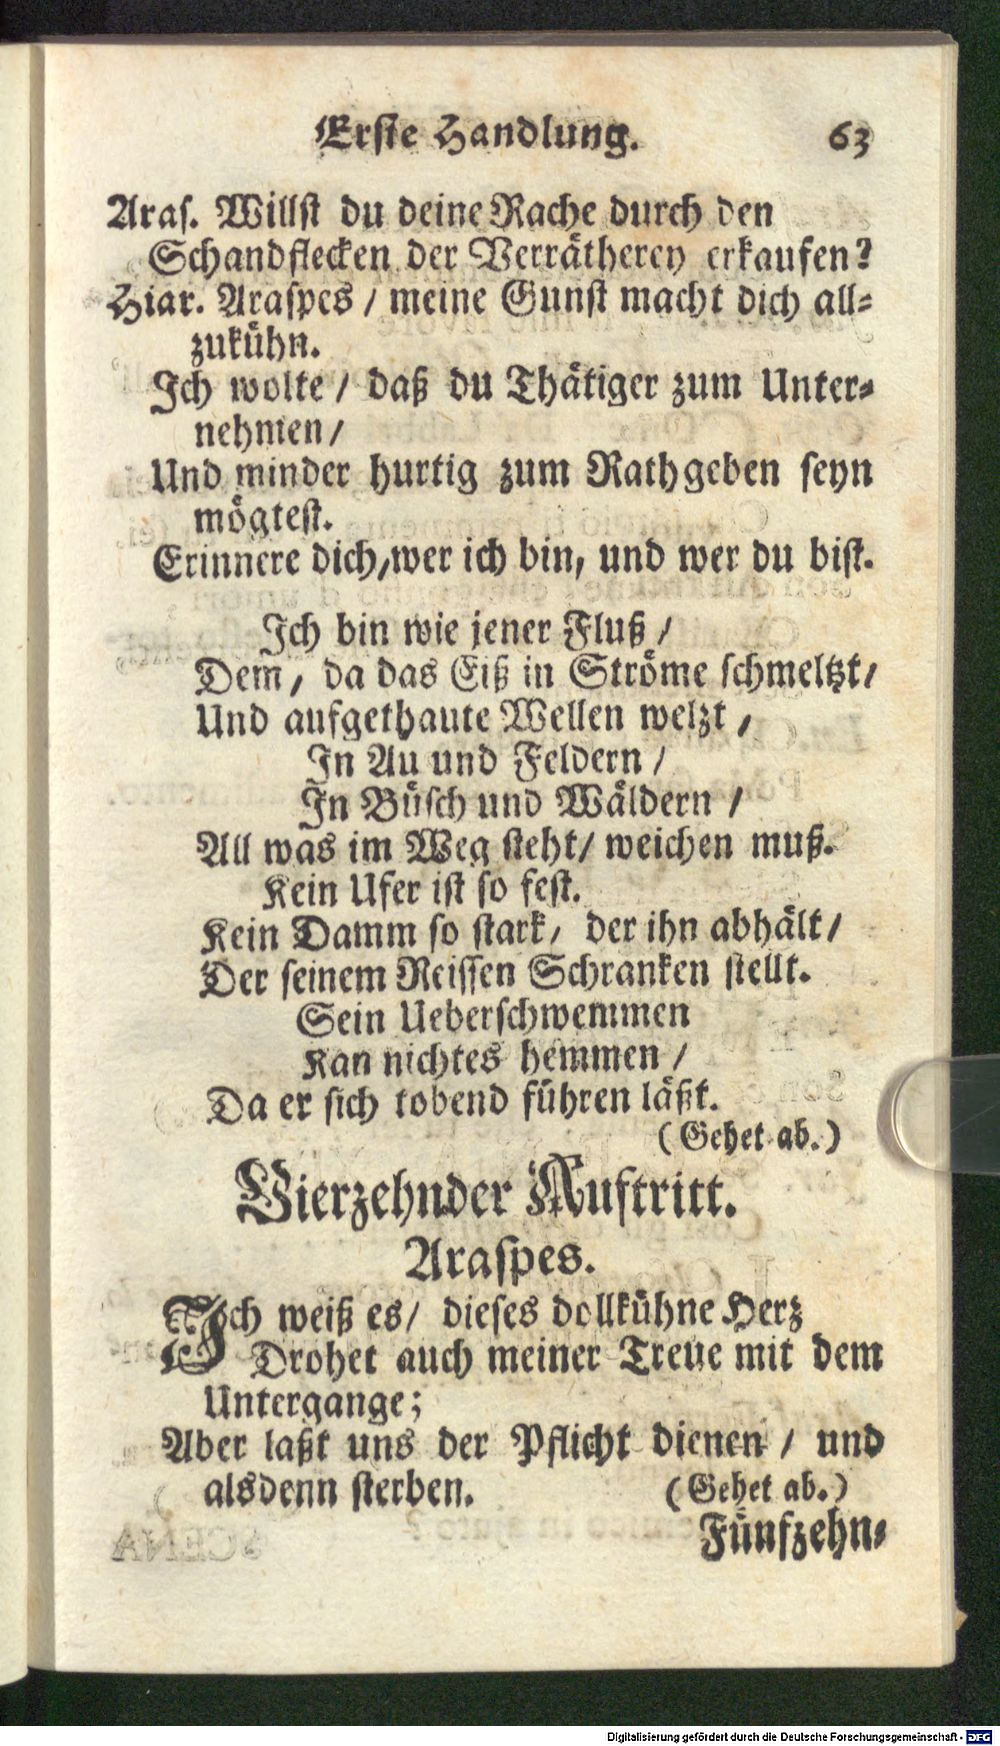 Erste Handlung. 63
Aras. Willst du deine Rache durch den
Schandflecken der Verrätherey erkaufen?
Hiar. Araspes / meine Gunst macht dich all-
zukühn.
Ich wolte / daß du Thätiger zum Unter-
nehmen /
Und minder hurtig zum Rathgeben seyn
mögtest.
Erinnere dich, wer ich bin, und wer du bist.
Ich bin wie jener Fluß /
Dem / da das Eiß in Ströme schmeltzt /
Und aufgethaute Wellen welzt /
In Au und Feldern /
In Büsch und Wäldern /
All was im Weg steht / weichen muß.
Kein Ufer ist so fest.
Kein Damm so stark / der ihn abhält /
Der seinem Reissen Schranken stellt.
Sein Ueberschwemmen
Kan nichtes hemmen /
Da er sich tobend führen läßt.
(Gehet ab.)
Vierzehnder Auftritt.
Araspes.
Ich weiß es / dieses dollkühne Herz
Drohet auch meiner Treue mit dem
Untergange;
Aber laßt uns der Pflicht dienen / und
alsdenn sterben. (Gehet ab.)
Fünfzehn-
Digitalisierung gefördert durch die Deutsche Forschungsgemeinschaft - DFG